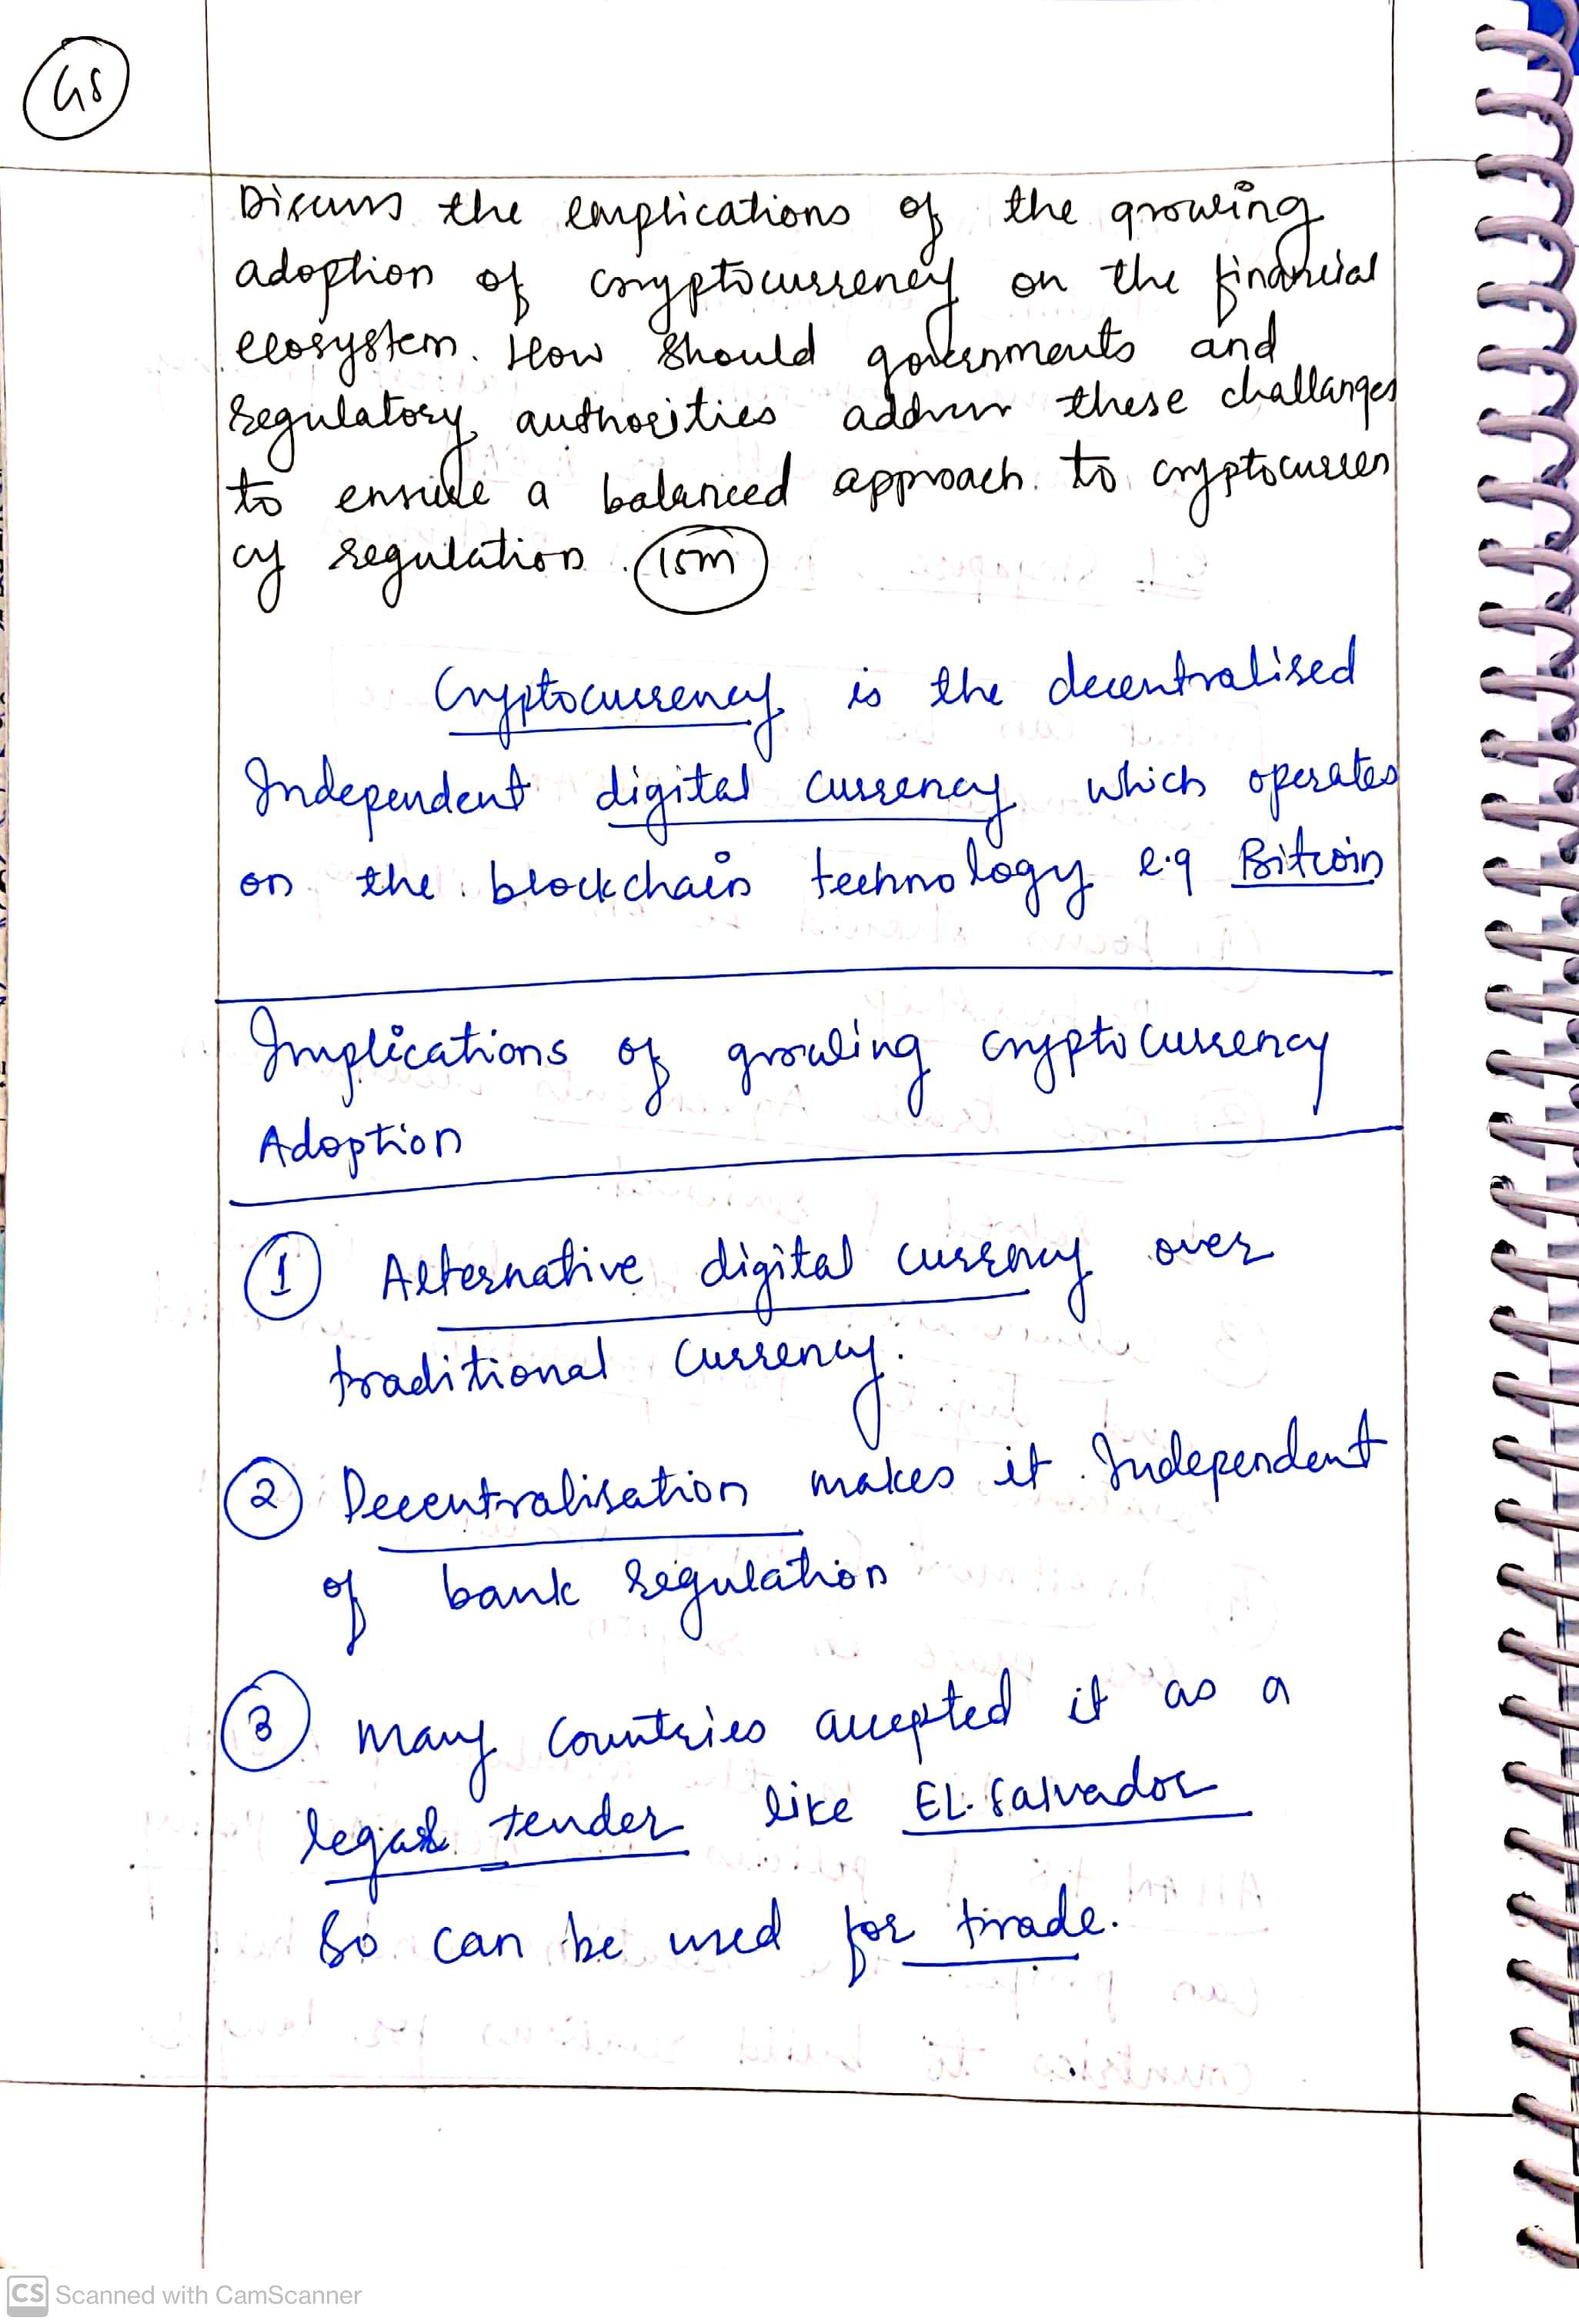 GS
Discuss the implications of the growing
adoption of cryptocurrency on the financial
ecosystem. How should governments and
regulatory authorities address these challanges
to ensure a balanced approach to cryptocurren
cy regulation. 15m
Cryptocurrency is the decentralised
Independent digital currency which operates
on the blockchain technology e.g Bitcoin
Implications of growing cryptocurrency
Adoption
1 Alternative digital currency over
traditional currency.
2 Decentralisation makes it Independent
of bank regulation
3 Many Countries accepted it as a
legal tender like EL. Salvador
So can be used for trade.
CS Scanned with CamScanner